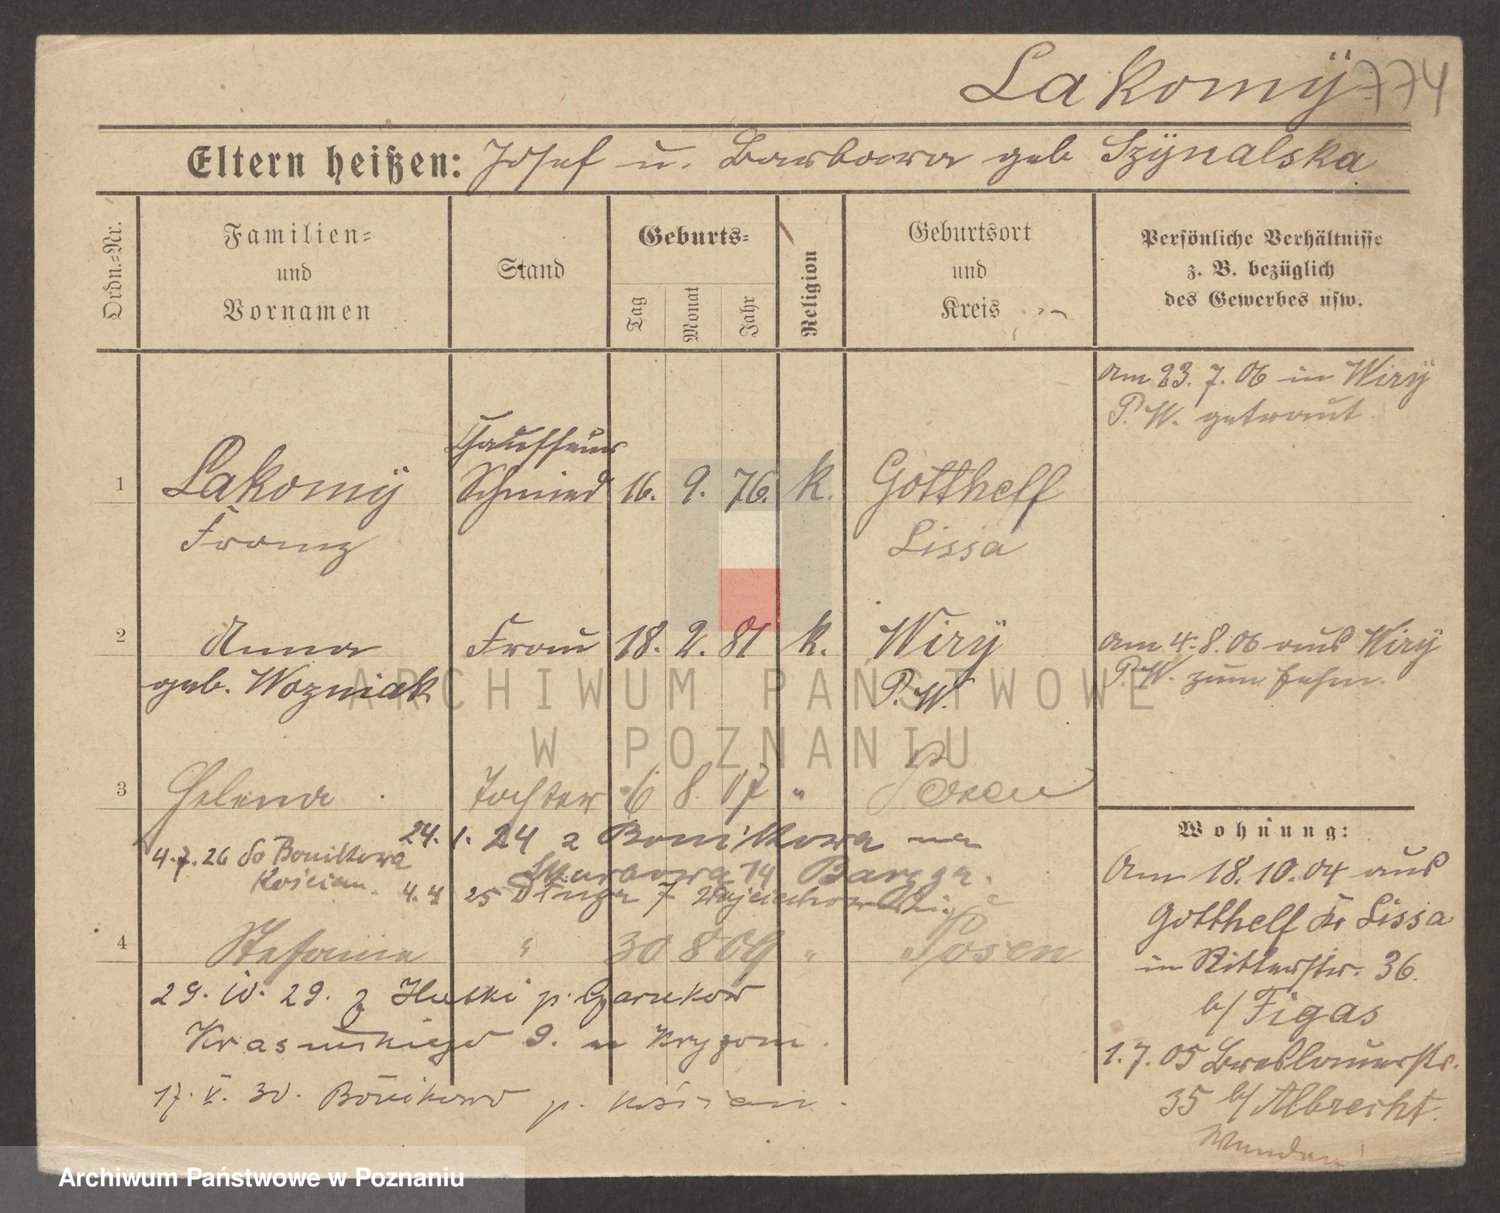 Lakomÿ 774
Eltern heißen: Josef u. Barbara geb Szÿnalska
Ordn.=Nr.
Familien=
und
Vornamen
Stand
Geburts=
Tag
Monat
Jahr
Religion
Geburtsort
und
Kreis
Persönliche Verhältnisse
z. B. bezüglich
des Gewerbes usw.
am 23. 7. 06 in Wirÿ
P. W. getraut
Chauffeur
1 Lakomÿ Schmied 16. 9. 76. k. Gotthelf
Franz Lissa
2 Anna Frau 18. 2. 81 k. Wirÿ
geb. Wozniak P. W.
am 4. 8. 06 aus Wirÿ
P. W. zum
3 Helena Tochter 6 8. 07 " Posen
24. 1. 24 z Bonikowa na
4.7.26 do Bonikowa
Kościan.
14
4. 4 25 Długa 7
4 Stefanie " 30 8 09 " Posen
29. IV. 29. z p. Czarnków
9.
17. V. 30. Bonikowo p. Kościan.
Wohnung:
Am 18. 10. 04 aus
Gotthelf Kr Lissa
in Ritterstr. 36.
b/ Figas
1. 7. 05 Breslauerstr.
35 b/ Albrecht.
ARCHIWUM PAŃSTWOWE
W POZNANIU
Archiwum Państwowe w Poznaniu